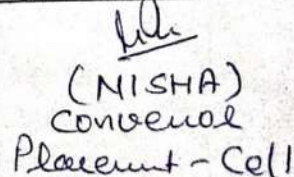 (NISHA)
Convenor
Placement-Cell